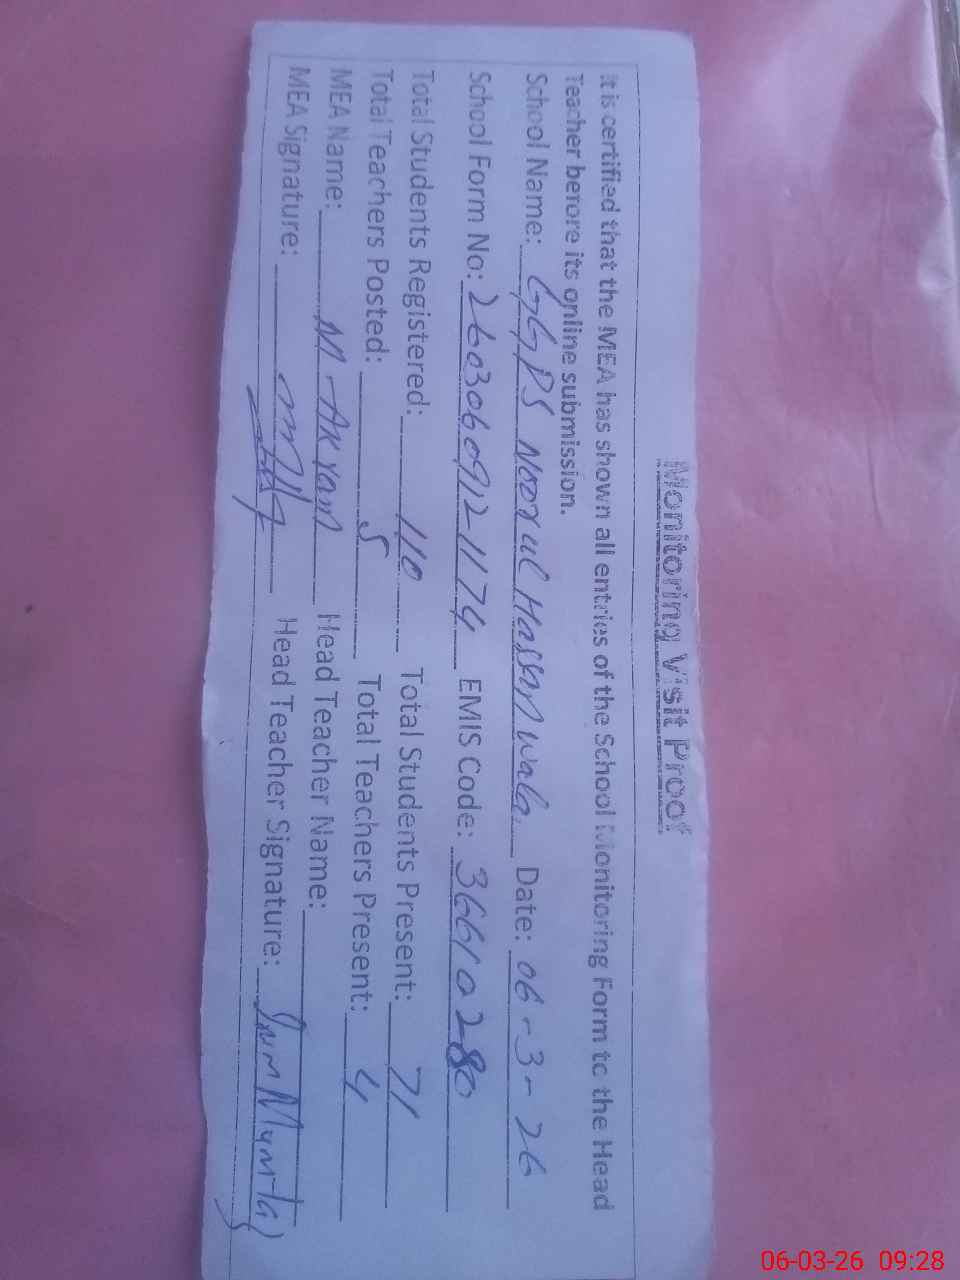 Monitoring Visit Proof
It is certified that the MEA has shown all entries of the School Monitoring Form to the Head
Teacher before its online submission.
School Name: GGPS Noorul Hassan wala. Date: 06-3-26
School Form No: 2603060912-1174 EMIS Code: 36610280
Total Students Registered: 110 Total Students Present: 71
Total Teachers Posted: 5 Total Teachers Present: 4
MEA Name: M-Akram Head Teacher Name:
MEA Signature: Head Teacher Signature: Mumtaz
06-03-26 09:28